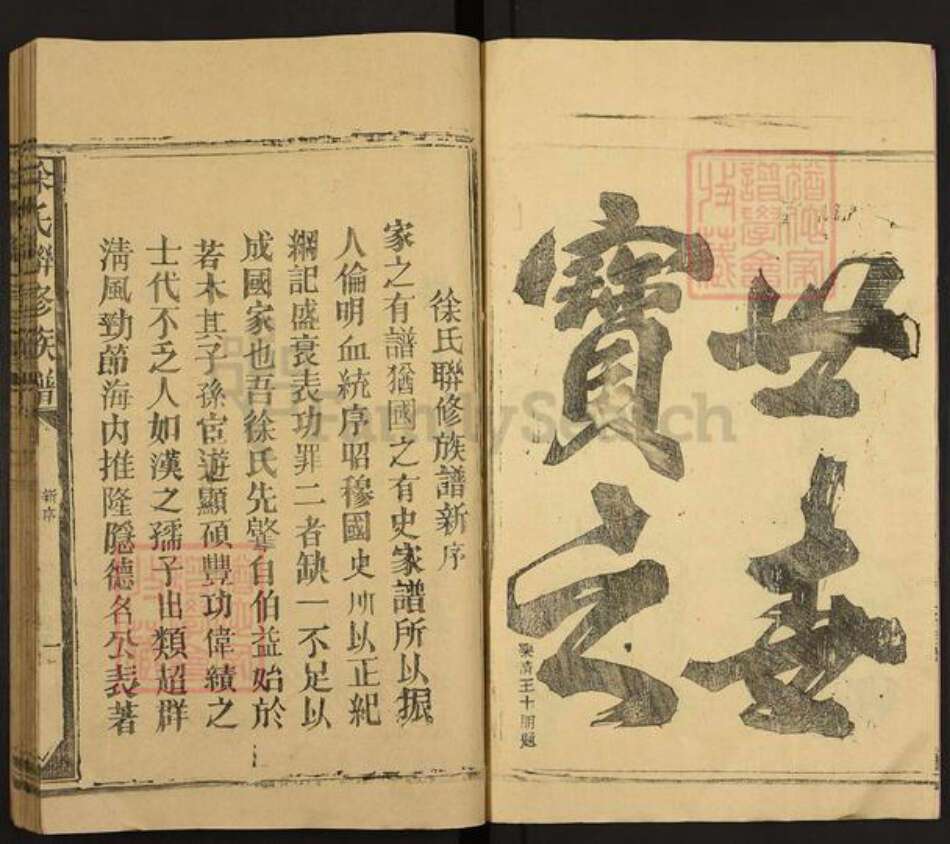 世世
寶之
樂清王十朋題
徐氏聯修族譜新序
家之有譜猶國之有史家譜所以振
人倫明血統序昭穆國史所以正紀
綱記盛衰表功罪二者缺一不足以
成國家也吾徐氏先肇自伯益始於
若木其子孫宦遊顯碩豐功偉績之
士代不乏人如漢之孺子出類超群
清風勁節海内推隆隱德名公表著
徐氏聯修族譜
新序
一
FamilySearch